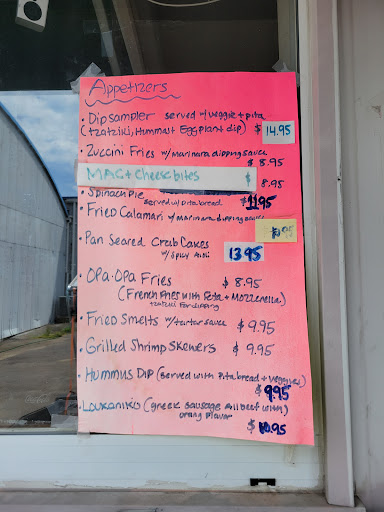 Appetizers
• Dip sampler served w/ veggie + pita
(tzatziki, Hummus + Eggplant dip) $ 14.95
• Zuccini Fries w/ marinara dipping sauce
$ 8.95
MAC + Cheese bites $ 8.95
• Spinach Pie served w/ pita bread $11.95
• Fried Calamari w/ marinara dipping sauce
• Pan Seared Crab Cakes
w/ spicy Aioli 13.95
• OPA-OPA Fries $ 8.95
(French Fries with Feta + Mozzerella)
tzatziki for dipping
• Fried Smelts w/ tarter sauce $ 9.95
• Grilled Shrimp Skewers $ 9.95
• Hummus Dip (served with Pita bread + veggies)
$ 9.95
• Loukaniko (greek sausage all beef with)
orang flavor
$ 10.95